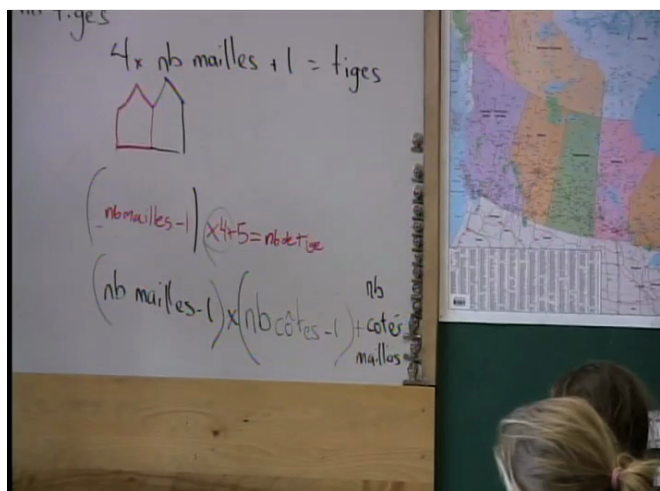 tiges
4 x nb mailles + 1 = tiges
(nb mailles - 1) x 4 + 5 = nb de tige
(nb mailles - 1) x (nb côtes - 1) + nb cotés mailles